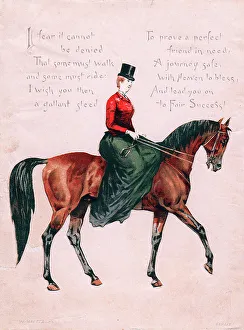 I fear it cannot
be denied
That some must walk
and some must ride
I wish you then
a gallant steed
To prove a perfect
friend in need,
A journey safe
with Heaven to bless,
And lead you on
to Fair Success!